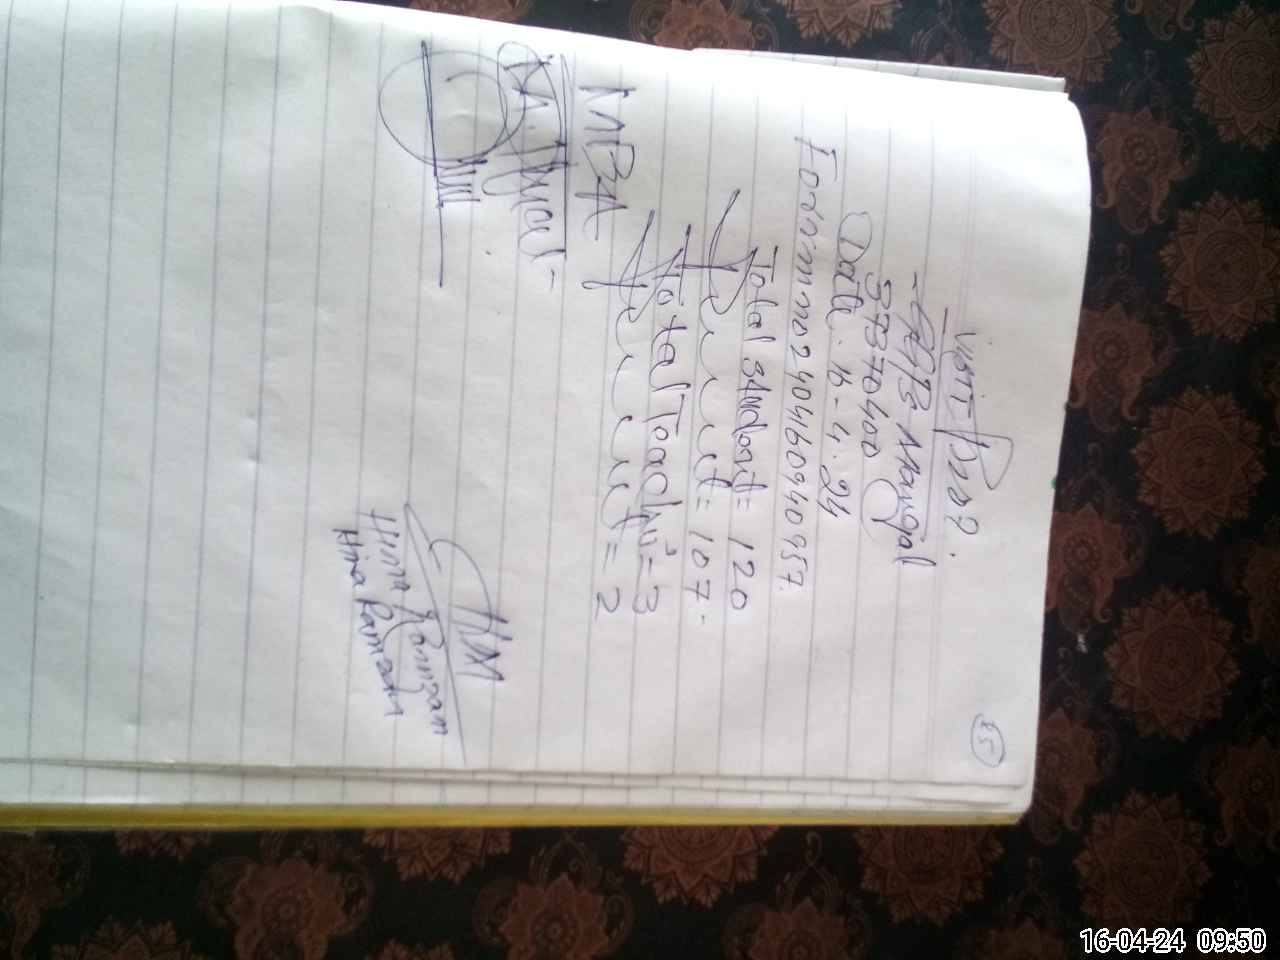 25
Visit
GPS Mangal
37370400
Date. 16-4.24
Form no 2404160940957
Total Student = 120
Present = 107.
Total Teacher = 3
Present = 2
MEA
HM
Hina Ramzan
Hina Ramzan
16-04-24 09:50